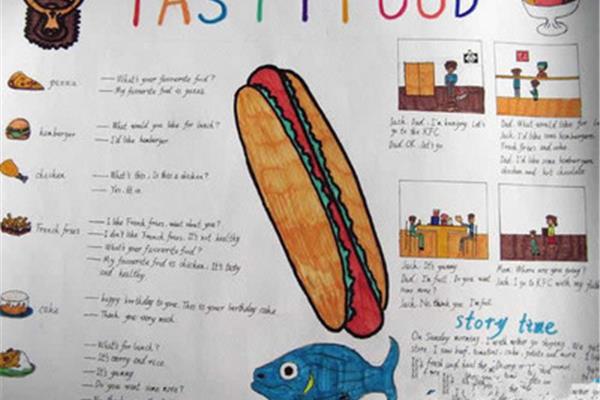 TASTY FOOD
pizza
— What's your favourite food?
— My favorite food is pizza.
hamberger
— What would you like for lunch?
— I'd like hamberger
chicken
— What's this, Is this a chicken?
— Yes, it is.
French fries
— I like French fries, what about you?
— I don't like French fries. It's not healthy
— What's your favourite food?
— My favorite food is chicken. It's tasty
and healthy.
cake
— happy birthday to you. This is your birthday cake.
— Thank you very much.
— What's for lunch?
— It's curry and rice.
— It's yummy
— Do you want some more?
Jack: Dad, I'm hungry. Let's
go to the KFC
Dad: OK. let's go
Dad: What would you like for
Jack: I'd like some hambergers,
French fries and coke.
Dad: I'd like some hamberger
chicken and hot chocolate.
Jack: It's yummy
Dad: I'm full. Do you want
some more?
Jack: No, thank you. I'm full.
Mom: Where are you going?
Jack: I go to KFC with my
story time
On Sunday morning, I with
store. I saw beef, tomatoes, cake, potato and more.
It's fresh and